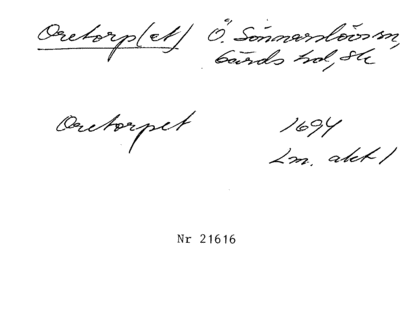 Oretorp(et) Ö. Sönnarslövs sn,
Gärds hd, Sk
Oretorpet 1694
Lm. akt 1
Nr 21616